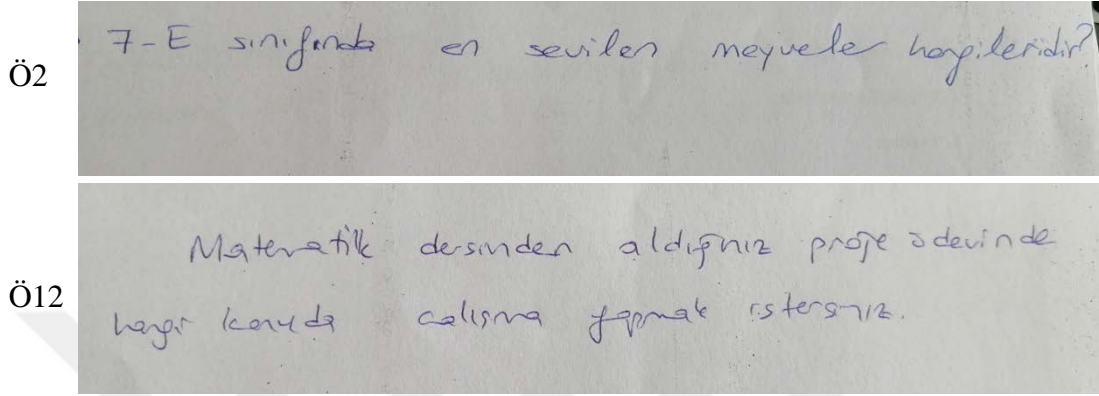 Ö2
7-E sınıfında en sevilen meyveler hangileridir?
Ö12
Matematik dersinden aldığınız proje ödevinde
hangi konuda calışma yapmak istersiniz.